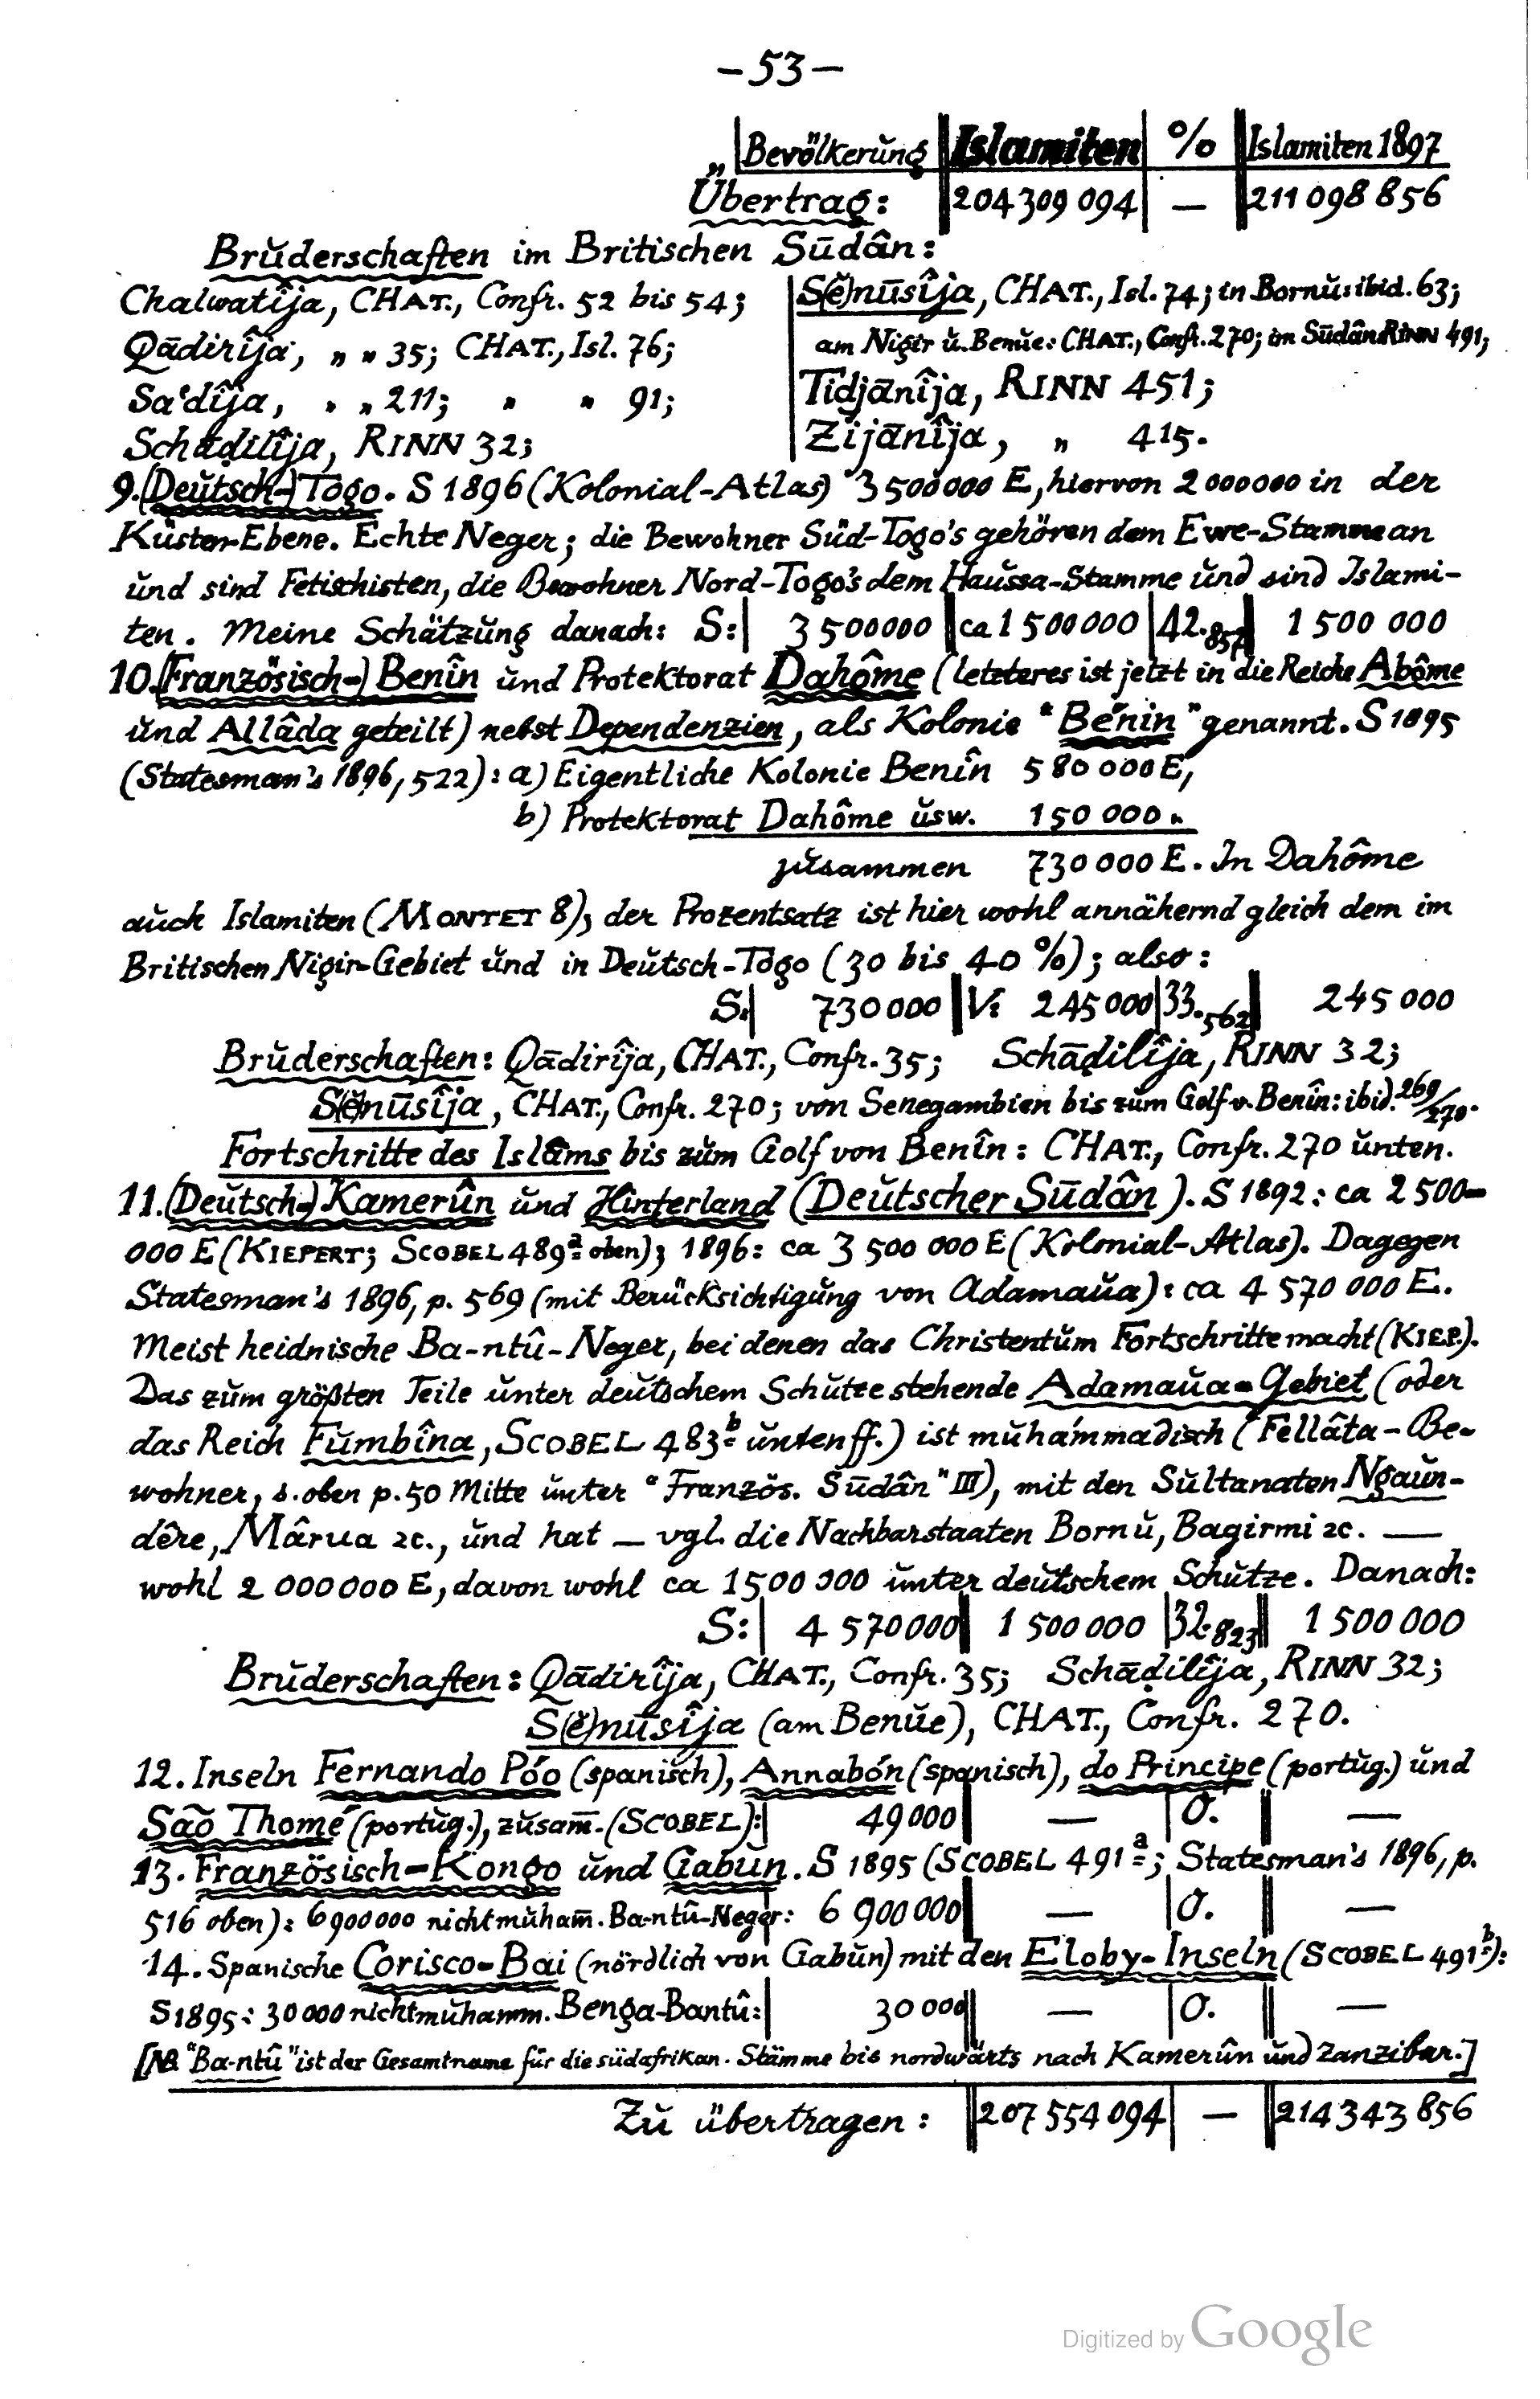 – 53 –
Bevölkerung | Islamiten | % | Islamiten 1897
Übertrag: | 204 309 094 | — | 211 098 856
Brŭderschaften im Britischen Sūdân:
Chalwatîja, CHAT., Confr. 52 bis 54;
Qādirîja, „ „ 35; CHAT., Isl. 76;
Sa'dîja, „ „ 211; „ „ 91;
Schāḍilîja, RINN 32;
S(ĕ)nūsîja, CHAT., Isl. 74; in Bornŭ: ibid. 63;
am Nigir ŭ. Benŭe: CHAT., Confr. 270; im Sūdân RINN 491;
Tidjānîja, RINN 451;
Zijānîja, „ 415.
9. (Deŭtsch-) Togo. S 1896 (Kolonial-Atlas) 3 500 000 E, hiervon 2 000 000 in der
Küsten-Ebene. Echte Neger; die Bewohner Süd-Togo's gehören dem Ewe-Stamme an
ŭnd sind Fetischisten, die Bewohner Nord-Togo's dem Haŭssa-Stamme ŭnd sind Islami-
ten. Meine Schätzŭng danach: S: | 3 500 000 | ca 1 500 000 | 42.857 | 1 500 000
10. (Französisch-) Benîn ŭnd Protektorat Dahôme (letzteres ist jetzt in die Reiche Abôme
ŭnd Allâda geteilt) nebst Dependenzien, als Kolonie "Bénin" genannt. S 1895
(Statesman's 1896, 522): a) Eigentliche Kolonie Benîn 580 000 E,
b) Protektorat Dahôme ŭsw. 150 000 „
zŭsammen 730 000 E. In Dahôme
aŭch Islamiten (MONTET 8); der Prozentsatz ist hier wohl annähernd gleich dem im
Britischen Nigir-Gebiet ŭnd in Deŭtsch-Togo (30 bis 40 %); also:
S: | 730 000 | V: 245 000 | 33.562 | 245 000
Brŭderschaften: Qādirîja, CHAT., Confr. 35; Schāḍilîja, RINN 32;
S(ĕ)nūsîja, CHAT., Confr. 270; von Senegambien bis zŭm Golf v. Benîn: ibid. 269/270.
Fortschritte des Islâms bis zŭm Golf von Benîn: CHAT., Confr. 270 ŭnten.
11. (Deŭtsch-) Kamerûn ŭnd Hinterland (Deŭtscher Sūdân). S 1892: ca 2 500-
000 E (KIEPERT; SCOBEL 489a oben); 1896: ca 3 500 000 E (Kolonial-Atlas). Dagegen
Statesman's 1896, p. 569 (mit Berücksichtigŭng von Adamaŭa): ca 4 570 000 E.
Meist heidnische Ba-ntû-Neger, bei denen das Christentŭm Fortschritte macht (KIEP.).
Das zŭm größten Teile ŭnter deŭtschem Schŭtze stehende Adamaŭa-Gebiet (oder
das Reich Fŭmbîna, SCOBEL 483b ŭnten ff.) ist mŭhámmadisch (Fellâta-Be-
wohner, s. oben p. 50 Mitte ŭnter "Französ. Sūdân" III), mit den Sŭltanaten Ngaŭn-
dêre, Mârua ⁊c., ŭnd hat — vgl. die Nachbarstaaten Bornŭ, Bagirmi ⁊c. —
wohl 2 000 000 E, davon wohl ca 1 500 000 ŭnter deŭtschem Schŭtze. Danach:
S: | 4 570 000 | 1 500 000 | 32.823 | 1 500 000
Brŭderschaften: Qādirîja, CHAT., Confr. 35; Schāḍilîja, RINN 32;
S(ĕ)nūsîja (am Benŭe), CHAT., Confr. 270.
12. Inseln Fernando Póo (spanisch), Annabón (spanisch), do Principe (portŭg.) ŭnd
São Thomé (portŭg.), zŭsam̄. (SCOBEL): | 49 000 | — | 0. | —
13. Französisch-Kongo ŭnd Gabŭn. S 1895 (SCOBEL 491a; Statesman's 1896, p.
516 oben): 6 900 000 nichtmŭham̄. Ba-ntû-Neger: 6 900 000 | — | 0. | —
14. Spanische Corisco-Bai (nördlich von Gabŭn) mit den Eloby-Inseln (SCOBEL 491b):
S 1895: 30 000 nichtmŭhamm. Benga-Bantû: | 30 000 | — | 0. | —
[NB. "Ba-ntû" ist der Gesamtname für die südafrikan. Stämme bis nordwärts nach Kamerûn ŭnd Zanzibar.]
Zŭ übertragen: | 207 554 094 | — | 214 343 856
Digitized by Google